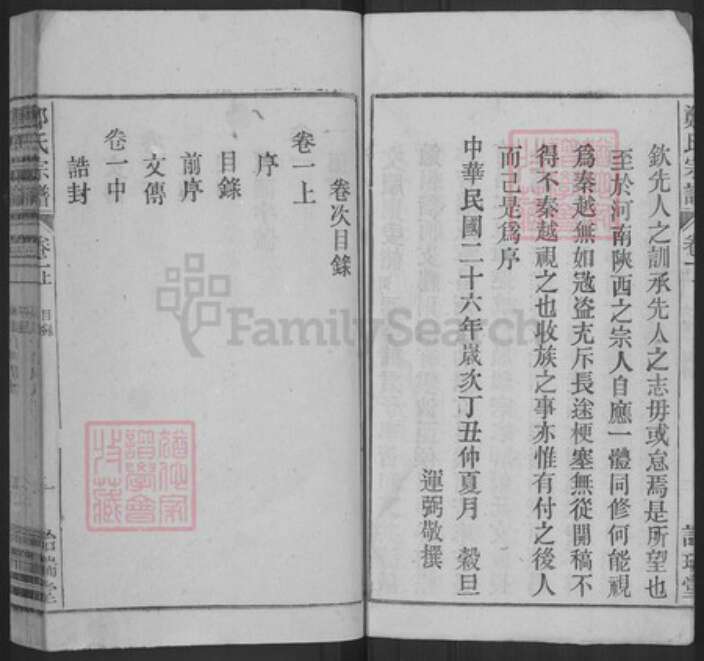 鄭氏宗譜
卷一
欽先人之訓承先人之志毋或怠焉是所望也
至於河南陝西之宗人自應一體同修何能視
爲秦越無如寇盜充斥長途梗塞無從開稿不
得不秦越視之也收族之事亦惟有付之後人
而已是爲序
中華民國二十六年歲次丁丑仲夏月 穀旦
運弼敬撰
卷次目錄
卷一上
序
目錄
前序
文傳
卷一中
誥封
鄭氏宗譜
卷一上
目錄
一
FamilySearch